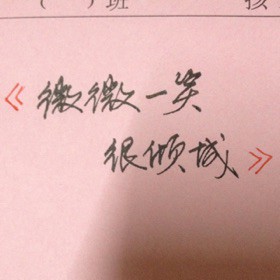 ( )班 孩
《微微一笑
很倾城》